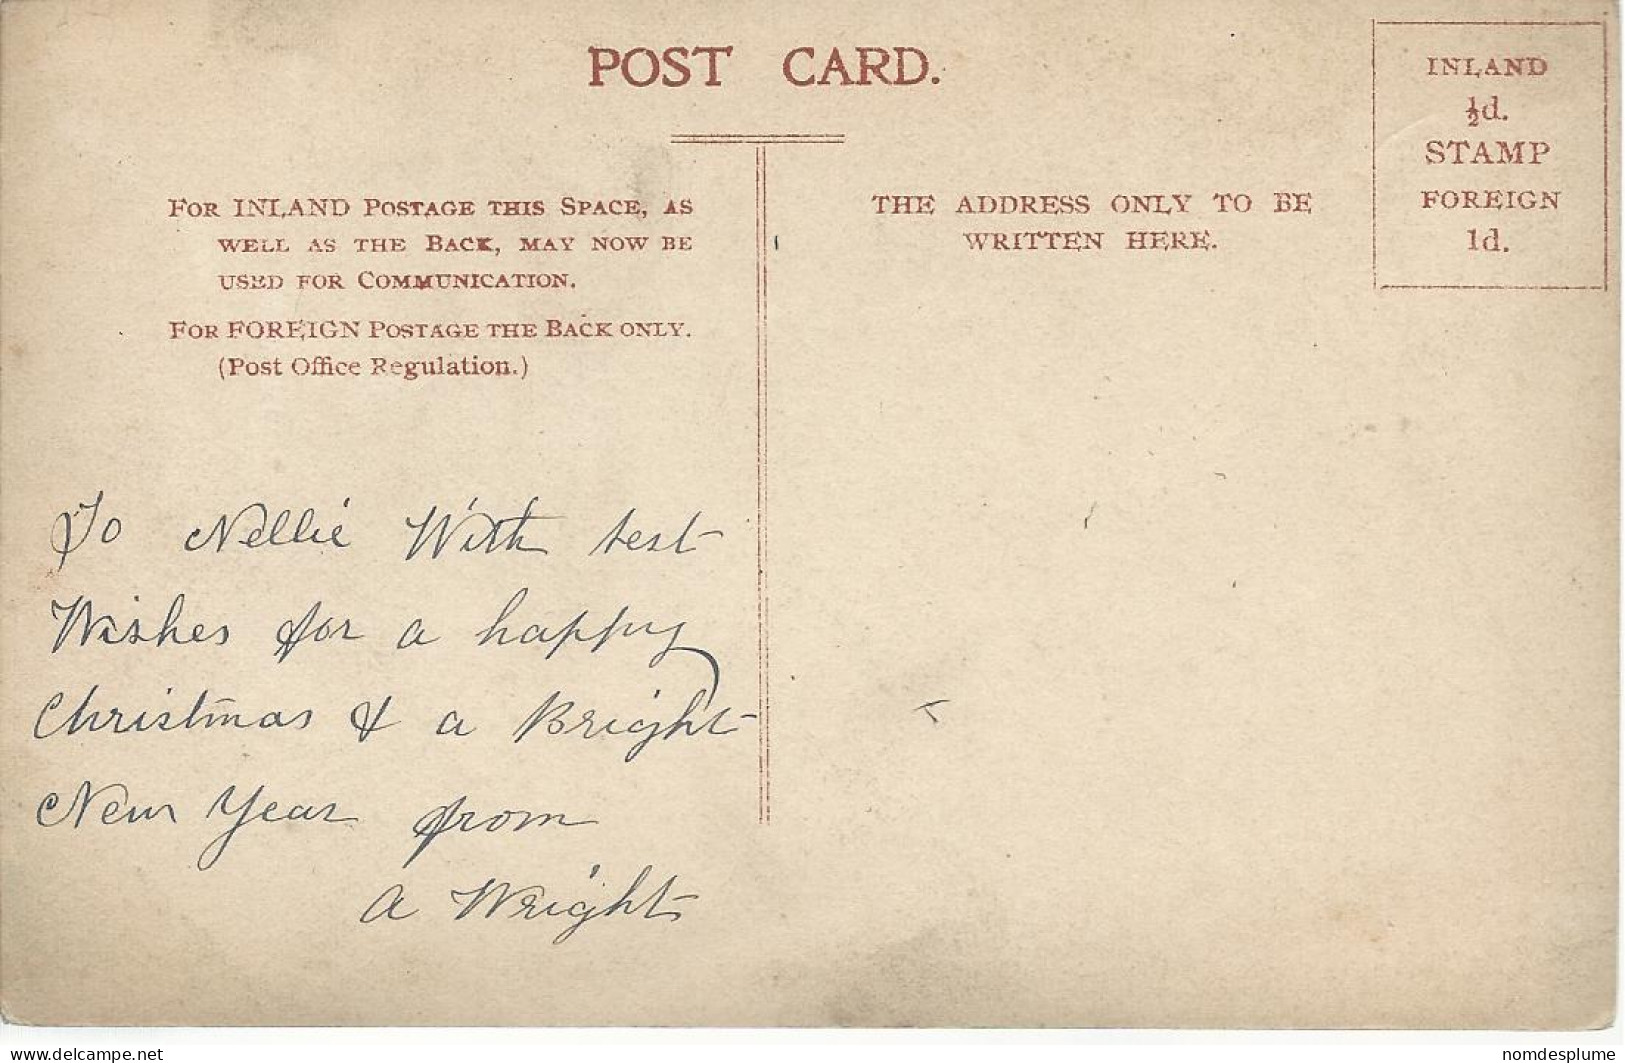 POST CARD.
INLAND
½d.
STAMP
FOREIGN
1d.
FOR INLAND POSTAGE THIS SPACE, AS
WELL AS THE BACK, MAY NOW BE
USED FOR COMMUNICATION.
FOR FOREIGN POSTAGE THE BACK ONLY.
(Post Office Regulation.)
THE ADDRESS ONLY TO BE
WRITTEN HERE.
To Nellie With best
Wishes for a happy
Christmas & a Bright
New Year from
A Wright
delcampe.net
nomdesplume